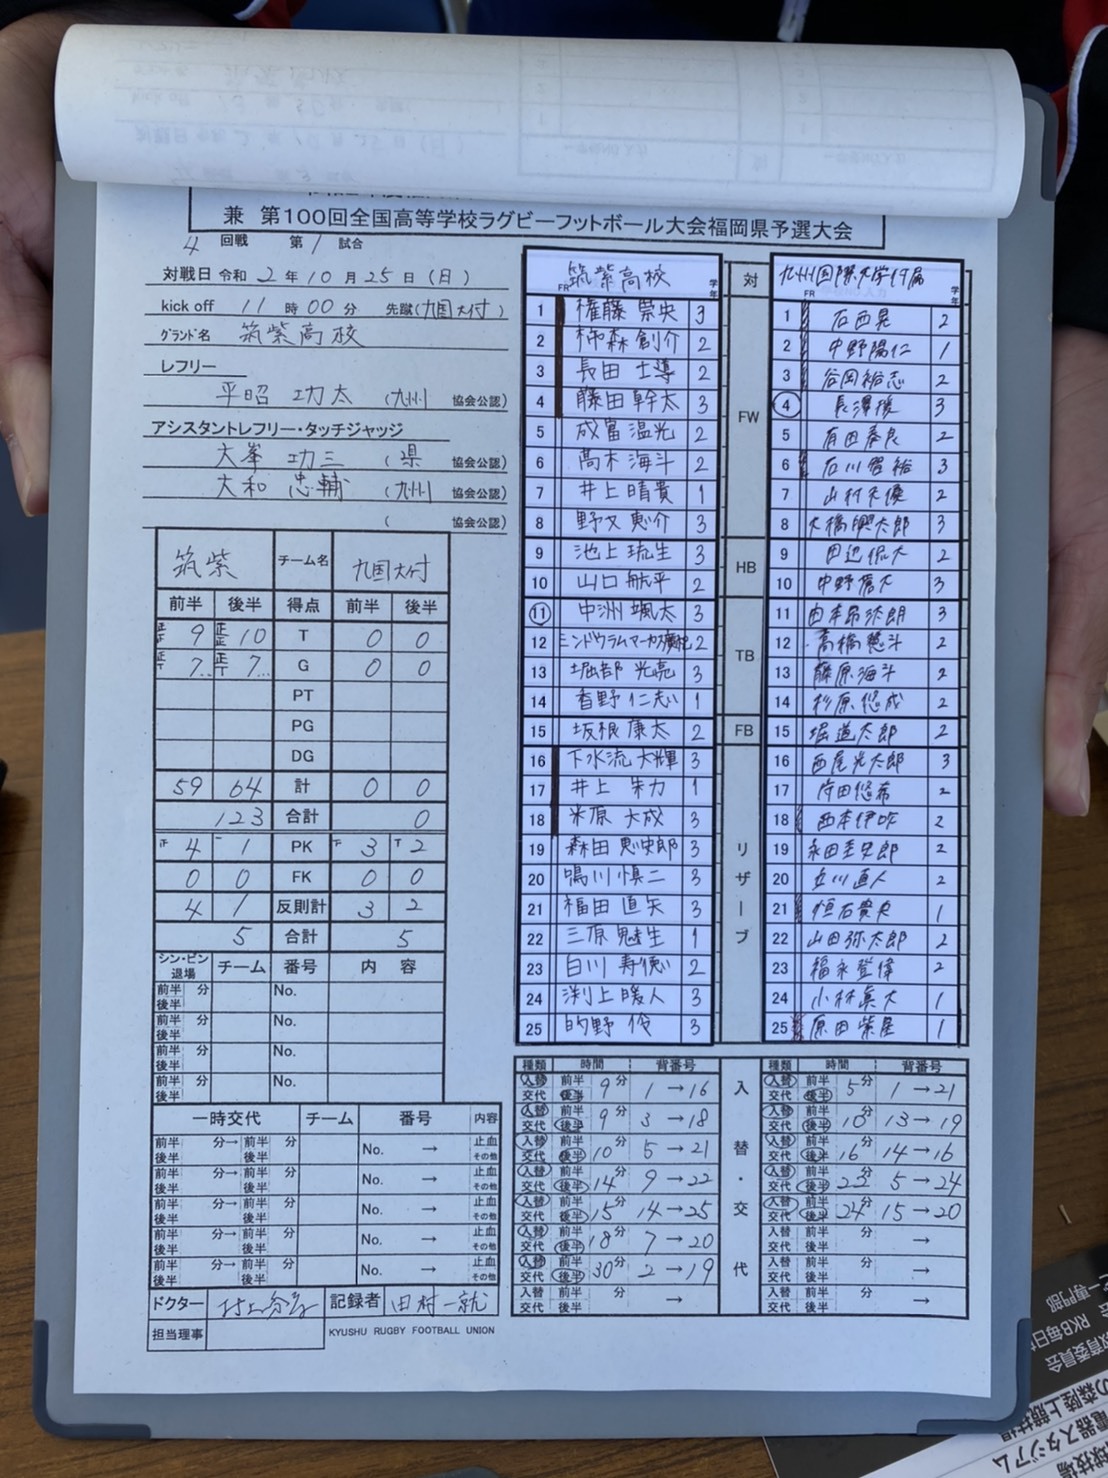 兼 第100回全国高等学校ラグビーフットボール大会福岡県予選大会
4 回戦 第 1 試合
対戦日 令和 2 年 10 月 25 日 (日)
kick off 11 時 00 分 先蹴(九国大付)
グランド名 筑紫高校
レフリー
平昭 功太 (九州 協会公認)
アシスタントレフリー・タッチジャッジ
大峯 功三 (県 協会公認)
大和 忠輔 (九州 協会公認)
( 協会公認)
筑紫 チーム名 九国大付
前半 後半 得点 前半 後半
9 10 T 0 0
7 7 G 0 0
PT
PG
DG
59 64 計 0 0
123 合計 0
4 1 PK 3 2
0 0 FK 0 0
4 1 反則計 3 2
5 合計 5
シン・ビン 退場 チーム 番号 内 容
前半 後半 分 No.
前半 後半 分 No.
前半 後半 分 No.
前半 後半 分 No.
一時交代 チーム 番号 内容
前半 後半 分→ 前半 後半 分 No. → 止血 その他
前半 後半 分→ 前半 後半 分 No. → 止血 その他
前半 後半 分→ 前半 後半 分 No. → 止血 その他
前半 後半 分→ 前半 後半 分 No. → 止血 その他
前半 後半 分→ 前半 後半 分 No. → 止血 その他
ドクター 記録者 田村 一就
担当理事 KYUSHU RUGBY FOOTBALL UNION
筑紫高校 学年
FR
1 権藤 崇央 3
2 柿森 創介 2
3 長田 士導 2
4 藤田 幹太 3
5 成富 温光 2
6 高木 海斗 2
7 井上 晴貴 1
8 野又 恵介 3
9 池上 琉生 3
10 山口 航平 2
11 中洲 颯太 3
12 2
13 堀部 光亮 3
14 香野 仁志 1
15 坂根 康太 2
16 下水流 大輝 3
17 井上 朱力 1
18 米原 大成 3
19 森田 恵史郎 3
20 鳴川 慎二 3
21 福田 直矢 3
22 三原 魁生 1
23 白川 寿徳 2
24 渕上 暖人 3
25 的野 伶 3
対
FW
HB
TB
FB
リザーブ
九州国際大学付属 学年
FR
1 石西晃 2
2 中野陽仁 1
3 谷岡裕志 2
4 長澤優 3
5 有田泰良 2
6 石川智裕 3
7 山村天優 2
8 大橋興太郎 3
9 田辺依大 2
10 中野唐大 3
11 西本昂弥朗 3
12 高橋悠斗 2
13 藤原海斗 2
14 杉原悠成 2
15 堀道太郎 2
16 西尾光太郎 3
17 2
18 西本伊吹 2
19 永田圭史郎 2
20 立川直人 2
21 恒石貴央 1
22 山田弥太郎 2
23 福永登偉 2
24 小林真大 1
25 原田紫星 1
種類 時間 背番号
入替 交代 前半 後半 9分 1→16
入替 交代 前半 後半 9分 3→18
入替 交代 前半 後半 10分 5→21
入替 交代 前半 後半 14分 9→22
入替 交代 前半 後半 15分 14→25
入替 交代 前半 後半 18分 7→20
入替 交代 前半 後半 30分 2→19
入替 交代 前半 後半 分 →
入替・交代
種類 時間 背番号
入替 交代 前半 後半 5分 1→21
入替 交代 前半 後半 10分 13→19
入替 交代 前半 後半 16分 14→16
入替 交代 前半 後半 23分 5→24
入替 交代 前半 後半 24分 15→20
入替 交代 前半 後半 分 →
入替 交代 前半 後半 分 →
入替 交代 前半 後半 分 →